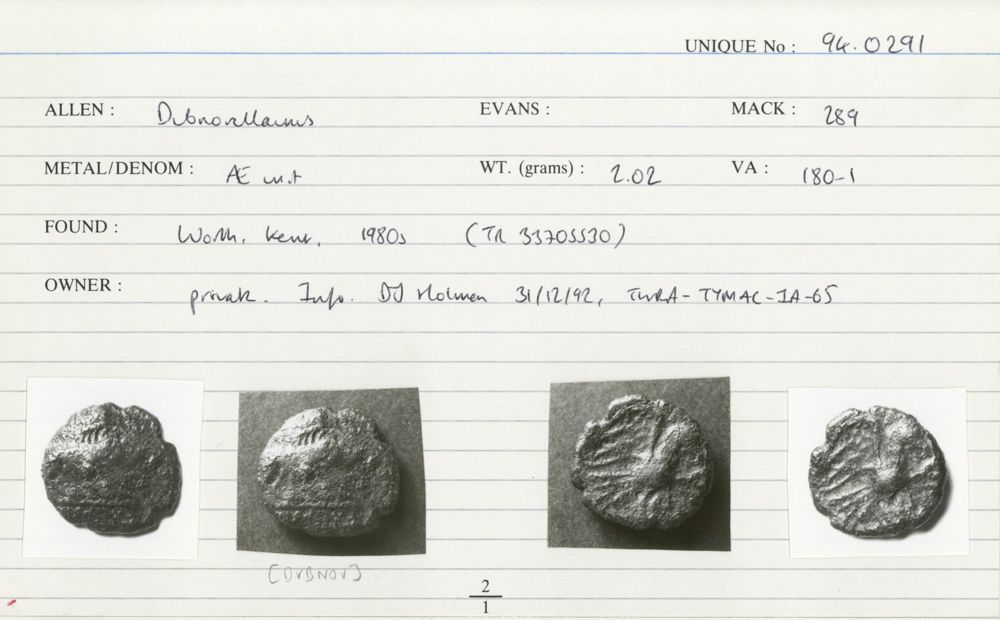 UNIQUE No : 94.0291
ALLEN : Dubnovellaunus EVANS : MACK : 289
METAL/DENOM : Æ unit WT. (grams) : 2.02 VA : 180-1
FOUND : Worth, Kent, 1980s (TR 33705530)
OWNER : private. Info. DJ Holman 31/12/92, TWRA-TYMAC-IA-65
[DVBNOV]
2
1